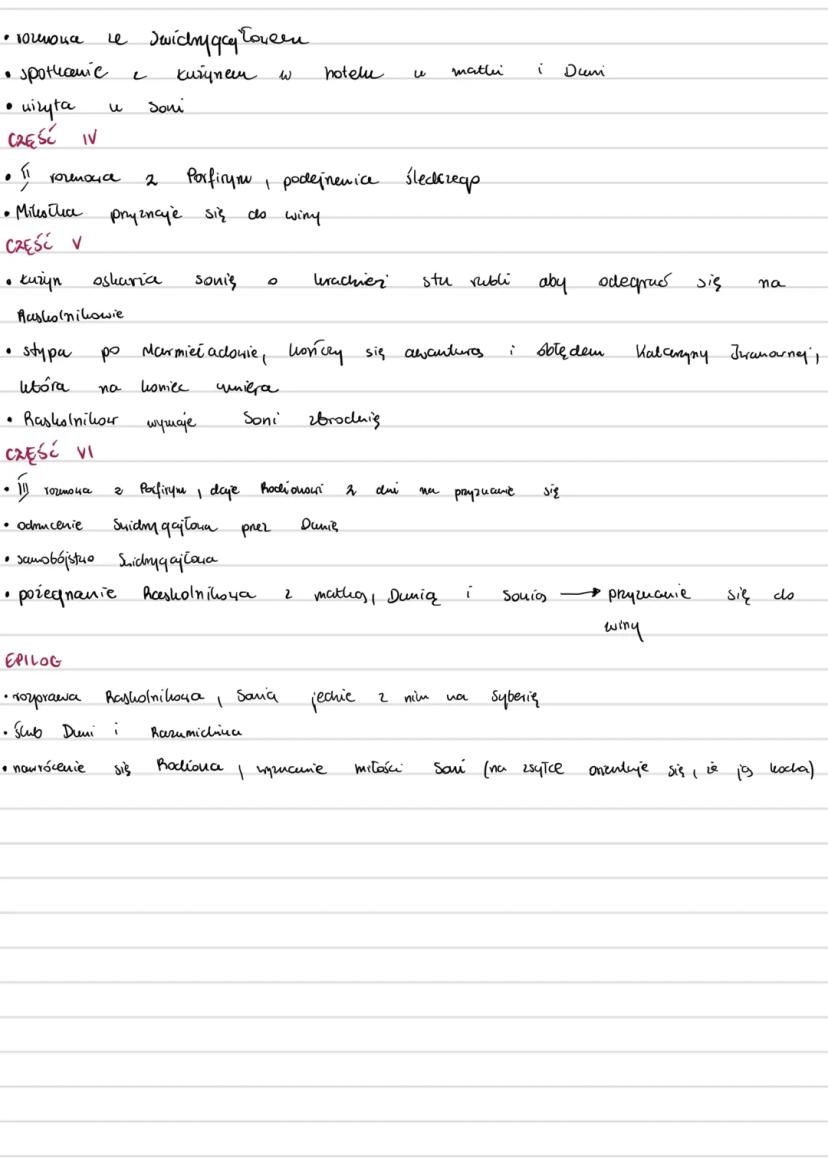 • rozmowa ze Swidrygajłowem
• spotkanie z kuzynem w hotelu u matki i Duni
• wizyta u Soni
CZĘŚĆ IV
• II rozmowa z Porfirym, podejrzenia śledczego
• Mikołka przyznaje się do winy
CZĘŚĆ V
• kuzyn oskarża Sonię o kradzież stu rubli aby odegrać się na
Raskolnikowie
• stypa po Marmieładowie, kończy się awanturą i obłędem Katarzyny Iwanownej,
która na koniec umiera
• Raskolnikow wyznaje Soni zbrodnię
CZĘŚĆ VI
• III rozmowa z Porfirym, daje Rodionowi 2 dni na przyznanie się
• odrzucenie Swidrygajłowa przez Dunię
• samobójstwo Swidrygajłowa
• pożegnanie Raskolnikowa z matką, Dunią i Sonią → przyznanie się do
winy
EPILOG
• rozprawa Raskolnikowa, Sonia jedzie z nim na Syberię
• Ślub Duni i Razumichina
• nawrócenie się Rodiona, wyznanie miłości Soni (na zsyłce orientuje się, że ją kocha)